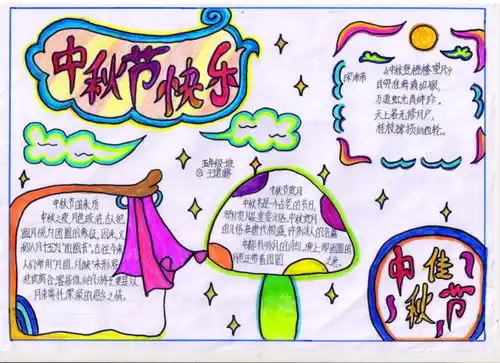 中秋节快乐
《中秋登楼望月》
宋·米芾
目穷淮海满如银,
万道虹光育蚌珍。
天上若无修月户,
桂枝撑损向西轮。
五年级一班
中秋节的来历
中秋之夜,月色皎洁,古人把
圆月视为团圆的象征,因此,又
称八月十五为"团圆节"。古往今来,
人们常用"月圆、月缺"来形容
悲欢离合,客居他乡的游子更是以
月来寄托深深的思乡之情。
中秋节赏月
中秋节是一个古老的节日,
祭月赏月是重要习俗。中秋赏月
的习俗在唐代极盛,许多诗人的名篇
中都有咏月的诗句
中秋佳节